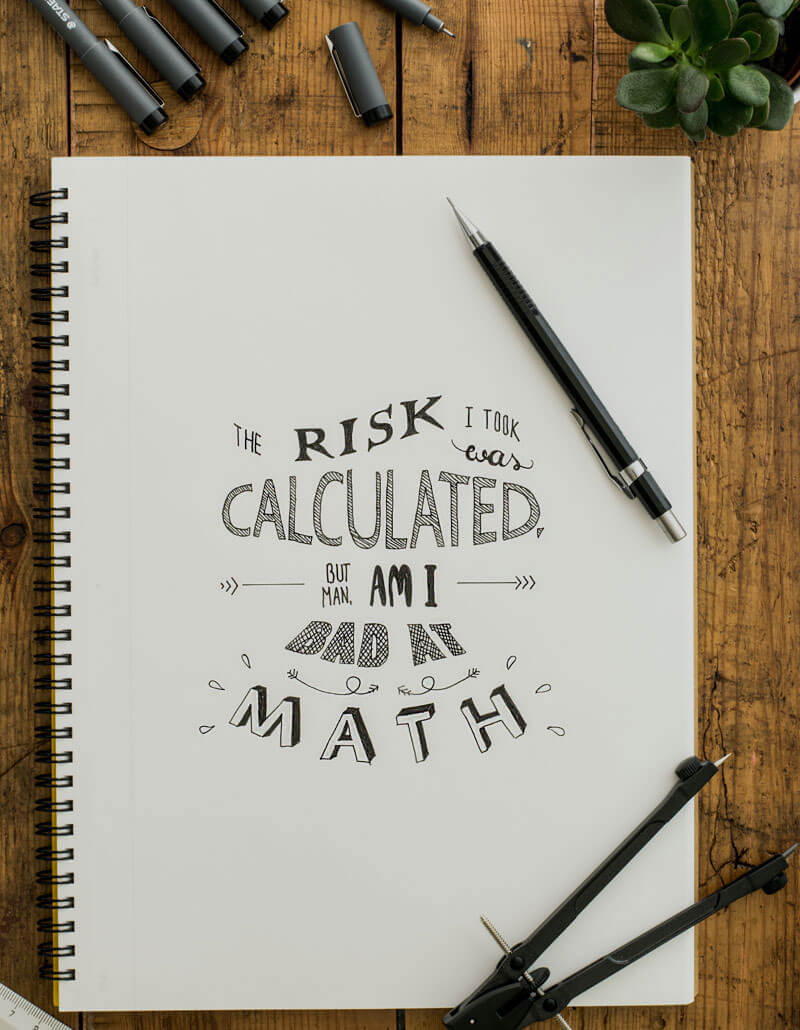 STAE
THE RISK I TOOK
was
CALCULATED,
BUT
MAN, AM I
BAD AT
MATH
7